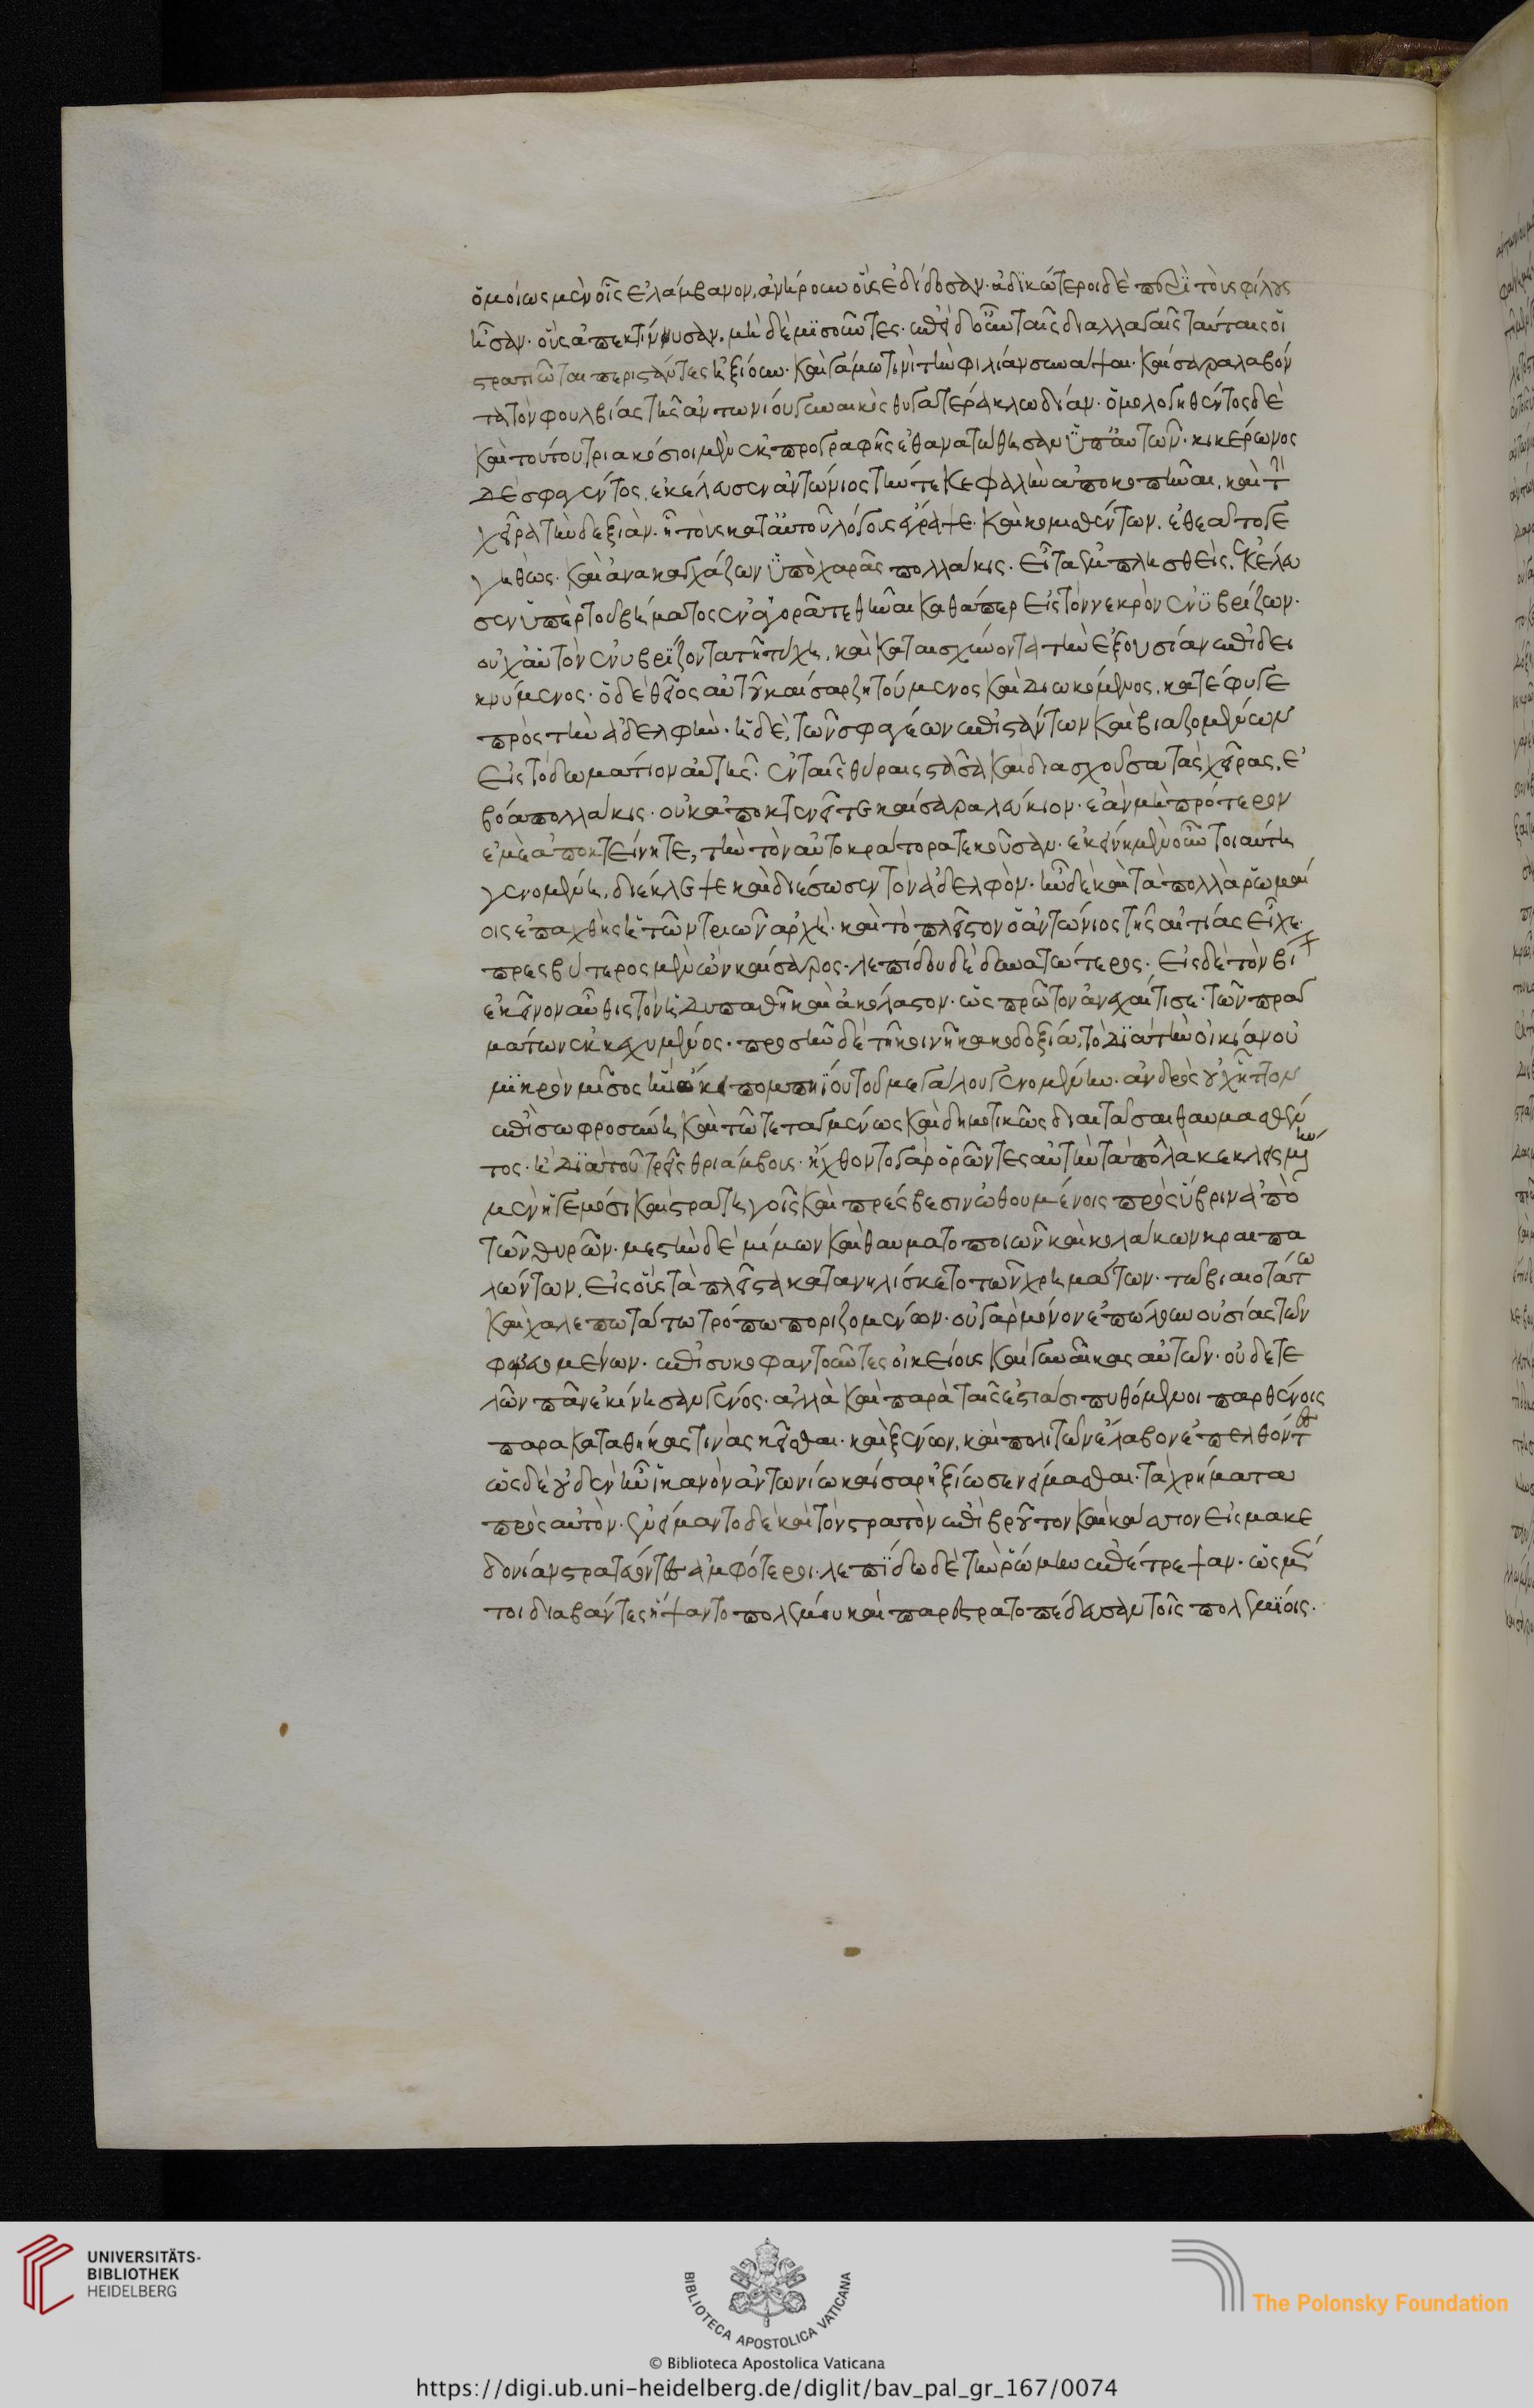 ὁμοίως μὲν οἷς ἐλάμβανον, ἀνῄρουν οἷς ἐδίδοσαν· ἀδικώτεροι δὲ περὶ τοὺς φίλους
ἦσαν· οὓς ἀπεκτίννυσαν, μὴ δὲ μισοῦντες. ἐπεὶ δ' οὖν ταῖς διαλλαγαῖς ταύταις οἱ
στρατιῶται περιστάντες ἠξίουν· καὶ γάμω τινὶ τὴν φιλίαν συνάψαι· καίσαρα λαβόν
τα τὸν φουλβίας τῆς ἀντωνίου γυναικὸς θυγατέρα κλωδίαν. ὁμολογηθέντος δὲ
καὶ τούτου τριακόσιοι μὲν ἐκ προγραφῆς ἐθανατώθησαν ὑπ' αὐτῶν. κικέρωνος
δὲ σφαγέντος, ἐκέλευσεν ἀντώνιος τήν τε κεφαλὴν ἀποκοπῆναι, καὶ τὴν
χεῖρα τὴν δεξιὰν. ἧ τοὺς κατ' αὐτοῦ λόγους ἔγραψε. καὶ κομισθέντων, ἐθεᾶτο γε
γηθὼς. καὶ ἀνακαγχάζων ὑπὸ χαρᾶς πολλάκις. εἶτα ἐμπλησθεὶς, ἐκέλευ
σεν ὑπὲρ τοῦ βήματος ἐν ἀγορᾶ τεθῆναι καθάπερ εἰς τὸν νεκρὸν ἐνϋβρίζων.
οὐχ αὑτὸν ἐνυβρίζοντα τῆ τύχη, καὶ καταισχύνοντα τὴν ἐξουσίαν ἐπιδει
κνύμενος. ὁ δὲ θεῖος αὐτοῦ καίσαρ ζητούμενος καὶ διωκόμενος, κατέφυγε
πρὸς τὴν ἀδελφήν. ἡ δὲ, τῶν σφαγέων ἐπιστάντων καὶ βιαζομένων
εἰς τὸ δωμάτιον αὐτῆς, ἐν ταῖς θύραις στᾶσα καὶ διασχοῦσα τὰς χεῖρας, ἐ
βόα πολλάκις. οὐκ ἀποκτενεῖτε καίσαρα λεύκιον. ἐὰν μὴ πρότερον
ἐμὲ ἀποκτείνητε, τὴν τὸν αὐτοκράτορα τεκοῦσαν. ἐκείνη μὲν οὖν τοιαύτη
γενομένη, διέκλεψε καὶ διέσωσεν τὸν ἀδελφὸν. ἦν δὲ καὶ τὰ πολλὰ ῥωμαί
οις ἐπαχθὴς ἡ τῶν τριῶν ἀρχή. καὶ τὸ πλεῖστον ὁ ἀντώνιος τῆς αἰτίας εἶχε·
πρεσβύτερος μὲν ὢν καίσαρος. λεπίδου δὲ δυνατώτερος. εἰς δὲ τὸν βίον
ἐκεῖνον αὖθις τὸν ἡδυπαθῆ καὶ ἀκόλαστον. ὡς πρῶτον ἀνεχαίτισε τῶν πραγ
μάτων ἐκκεχυμένος. προσῆν δὲ τῆ κοινῆ κακοδοξία, τὸ διὰ τὴν οἰκίαν οὐ
μικρὸν μῖσος ἣν ὤκει πομπηΐου τοῦ μεγάλου γενομένην. ἀνδρὸς οὐχ ἧττον
ἐπὶ σωφροσύνη καὶ τῶ τεταγμένως καὶ δημοτικῶς διαιτᾶσθαι θαυμασθέν
τος. ἢ διὰ τοὺς τρεῖς θριάμβους. ἤχθοντο γὰρ ὁρῶντες αὐτὴν τὰ πολλὰ κεκλεισμένην
μὲν ἡγεμόσι καὶ στρατηγοῖς καὶ πρέσβεσιν ὠθουμένοις πρὸς ὕβριν ἀπὸ
τῶν θυρῶν. μεστὴν δὲ μίμων καὶ θαυματοποιῶν καὶ κολάκων κραιπα
λώντων. εἰς οὓς τὰ πλεῖστα κατανηλίσκετο τῶν χρημάτων. τῶ βιαιοτάτω
καὶ χαλεπωτάτω τρόπω ποριζομένων. οὐ γὰρ μόνον ἐπώλουν οὐσίας τῶν
φονευομένων. ἐπισυκοφαντοῦντες οἰκείους καὶ γυναῖκας αὐτῶν. οὐδὲ τε
λῶν πᾶν ἐκίνησαν γένος. ἀλλὰ καὶ παρὰ ταῖς ἑστιάσι πυθόμενοι παρθένοις
παρακαταθήκας τινὰς κεῖσθαι. καὶ ξένων, καὶ πολιτῶν ἔλαβον ἐπελθόντες
ὡς δὲ οὐδὲν ἦν ἱκανὸν ἀντωνίω καίσαρ ἠξίωσεν νείμασθαι τὰ χρήματα
πρὸς αὐτὸν. ἐνείμαντο δὲ καὶ τὸν στρατὸν ἐπὶ βροῦτον καὶ κάσιον εἰς μακε
δονίαν στρατεύοντες ἀμφότεροι. λεπίδω δὲ τὴν ῥώμην ἐπέτρεψαν. ὡς μέν
τοι διαβάντες ἥψαντο πολέμου καὶ παρεστρατοπέδευσαν τοῖς πολεμίοις.
UNIVERSITÄTS-
BIBLIOTHEK
HEIDELBERG
BIBLIOTECA APOSTOLICA VATICANA
The Polonsky Foundation
© Biblioteca Apostolica Vaticana
https://digi.ub.uni-heidelberg.de/diglit/bav_pal_gr_167/0074